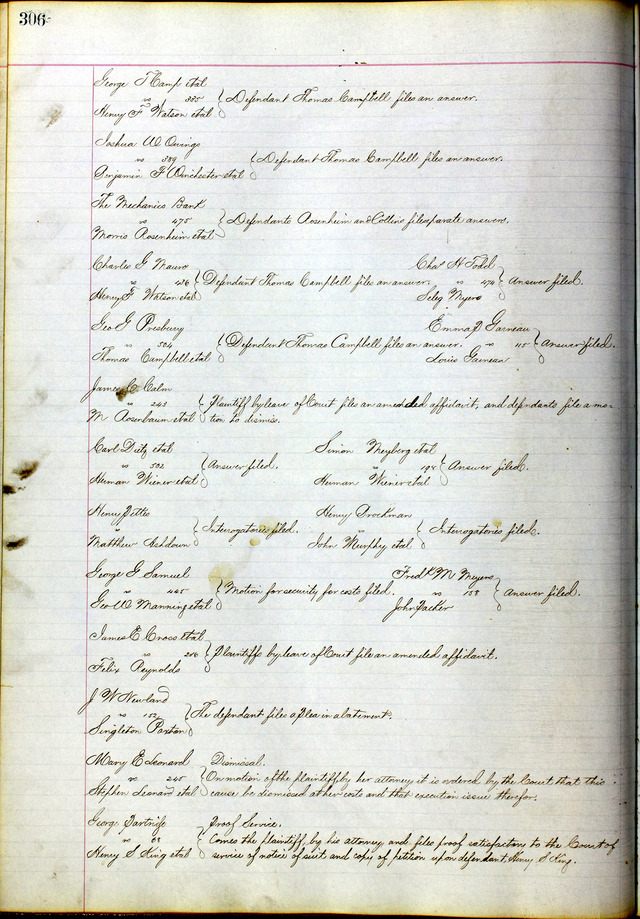 306
George T Camp etal
vs 385 Defendant Thomas Campbell files an answer.
Henry F Watson etal
Joshua W Owings
vs 389 Defendant Thomas Campbell files an answer.
Benjamin F Winchester etal
The Mechanics Bank
vs 475 Defendants Rosenheim and Collins file separate answers.
Morris Rosenheim etal
Charles G Mauro
vs 436 Defendant Thomas Campbell files an answer.
Henry F Watson etal
Chas H Todd
vs 474 Answer filed.
Seleg Myers
Geo G Presbury
vs 504 Defendant Thomas Campbell files an answer.
Thomas Campbell etal
Emma J Garneau
vs 115 Answer filed.
Louis Garneau
James C Calm
vs 243 Plaintiff by leave of Court files an amended affidavit, and defendants file a mo-
M Rosenbaum etal tion to dismiss.
Carl Dietz etal
vs 502 Answer filed.
Herman Wiener etal
Simon Meyberg etal
vs 198 Answer filed.
Herman Wiener etal
Henry
vs Interrogatories filed.
Matthew Ashdown
Henry Brockman
vs Interrogatories filed.
John Murphy etal
George G. Samuel
vs 445 Motion for security for costs filed.
Geo W Manning etal
Fredk M Meyers
vs 158 Answer filed.
John
James E Cross etal
vs 216 Plaintiffs by leave of Court file an amended affidavit.
Felix Reynolds
J W Newland
vs 152 The defendant files a plea in abatement.
Singleton Paxton
Mary E Leonard Dismissal.
vs 245 On motion of the plaintiff, by her attorney, it is ordered by the Court that this
Stephen Leonard etal cause be dismissed at her costs and that execution issue therefor.
George Partridge Proof Service.
vs 68 Comes the plaintiff, by his attorney, and files proof satisfactory to the Court of
Henry S King etal service of notice of suit and copy of petition upon defendant, Henry S King.